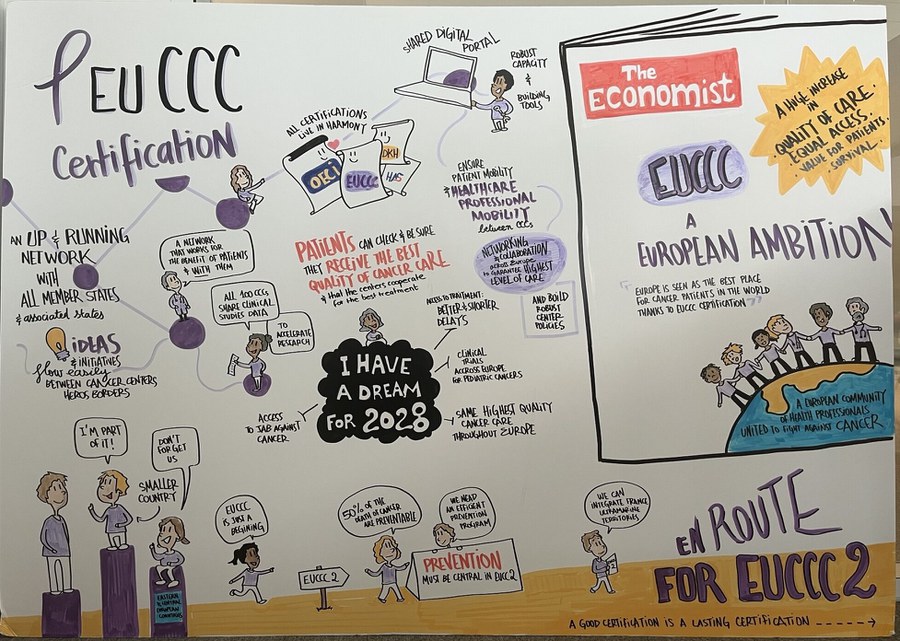 EU CCC
Certification
AN UP & RUNNING
NETWORK
WITH
ALL MEMBER STATES
& associated states
IDEAS
& INITIATIVES
flow easily
BETWEEN CANCER CENTERS
HEROS BORDERS
A NETWORK
THAT WORKS FOR
THE BENEFIT OF PATIENTS
& WITH THEM
ALL 100 CCCs
SHARE CLINICAL
STUDIES DATA
TO
ACCELERATE
RESEARCH
ALL CERTIFICATIONS
LIVE IN HARMONY
OECI
EUCCC
DKH
HAS
SHARED DIGITAL
PORTAL
ROBUST
CAPACITY
&
BUILDING
TOOLS
ENSURE
PATIENT MOBILITY
& HEALTHCARE
PROFESSIONAL
MOBILITY
between CCCs
NETWORKING
& COLLABORATION
ACROSS EUROPE
TO GUARANTEE HIGHEST
LEVEL OF CARE
AND BUILD
ROBUST
CENTER
POLICIES
PATIENTS CAN CHECK & BE SURE
THEY RECEIVE THE BEST
QUALITY OF CANCER CARE
& that the centers cooperate
for the best treatment
I HAVE
A DREAM
FOR 2028
BETTER & SHORTER
DELAYS
CLINICAL
TRIALS
ACCROSS EUROPE
FOR PEDIATRIC CANCERS
SAME HIGHEST QUALITY
CANCER CARE
THROUGHOUT EUROPE
ACCESS
TO JAB AGAINST
CANCER
The
Economist
A HUGE INCREASE
IN
QUALITY OF CARE.
EQUAL ACCESS.
VALUE FOR PATIENTS.
SURVIVAL.
EUCCC
A
EUROPEAN AMBITION
"EUROPE IS SEEN AS THE BEST PLACE
FOR CANCER PATIENTS IN THE WORLD
THANKS TO EUCCC CERTIFICATION"
A EUROPEAN COMMUNITY
OF HEALTH PROFESSIONALS
UNITED TO FIGHT AGAINST CANCER
I'M PART
OF IT!
DON'T
FORGET
US
SMALLER
COUNTRY
EUCCC
IS JUST A
BEGINING
EUCCC 2
50% OF THE
DEATH OF CANCER
ARE PREVENTABLE
WE NEED
AN EFFICIENT
PREVENTION
PROGRAM
PREVENTION
MUST BE CENTRAL IN EUCC 2
WE CAN
INTEGRATE FRANCE
ULTRAMARINE
TERRITORIES
EN ROUTE
FOR EUCCC 2
A GOOD CERTIFICATION IS A LASTING CERTIFICATION